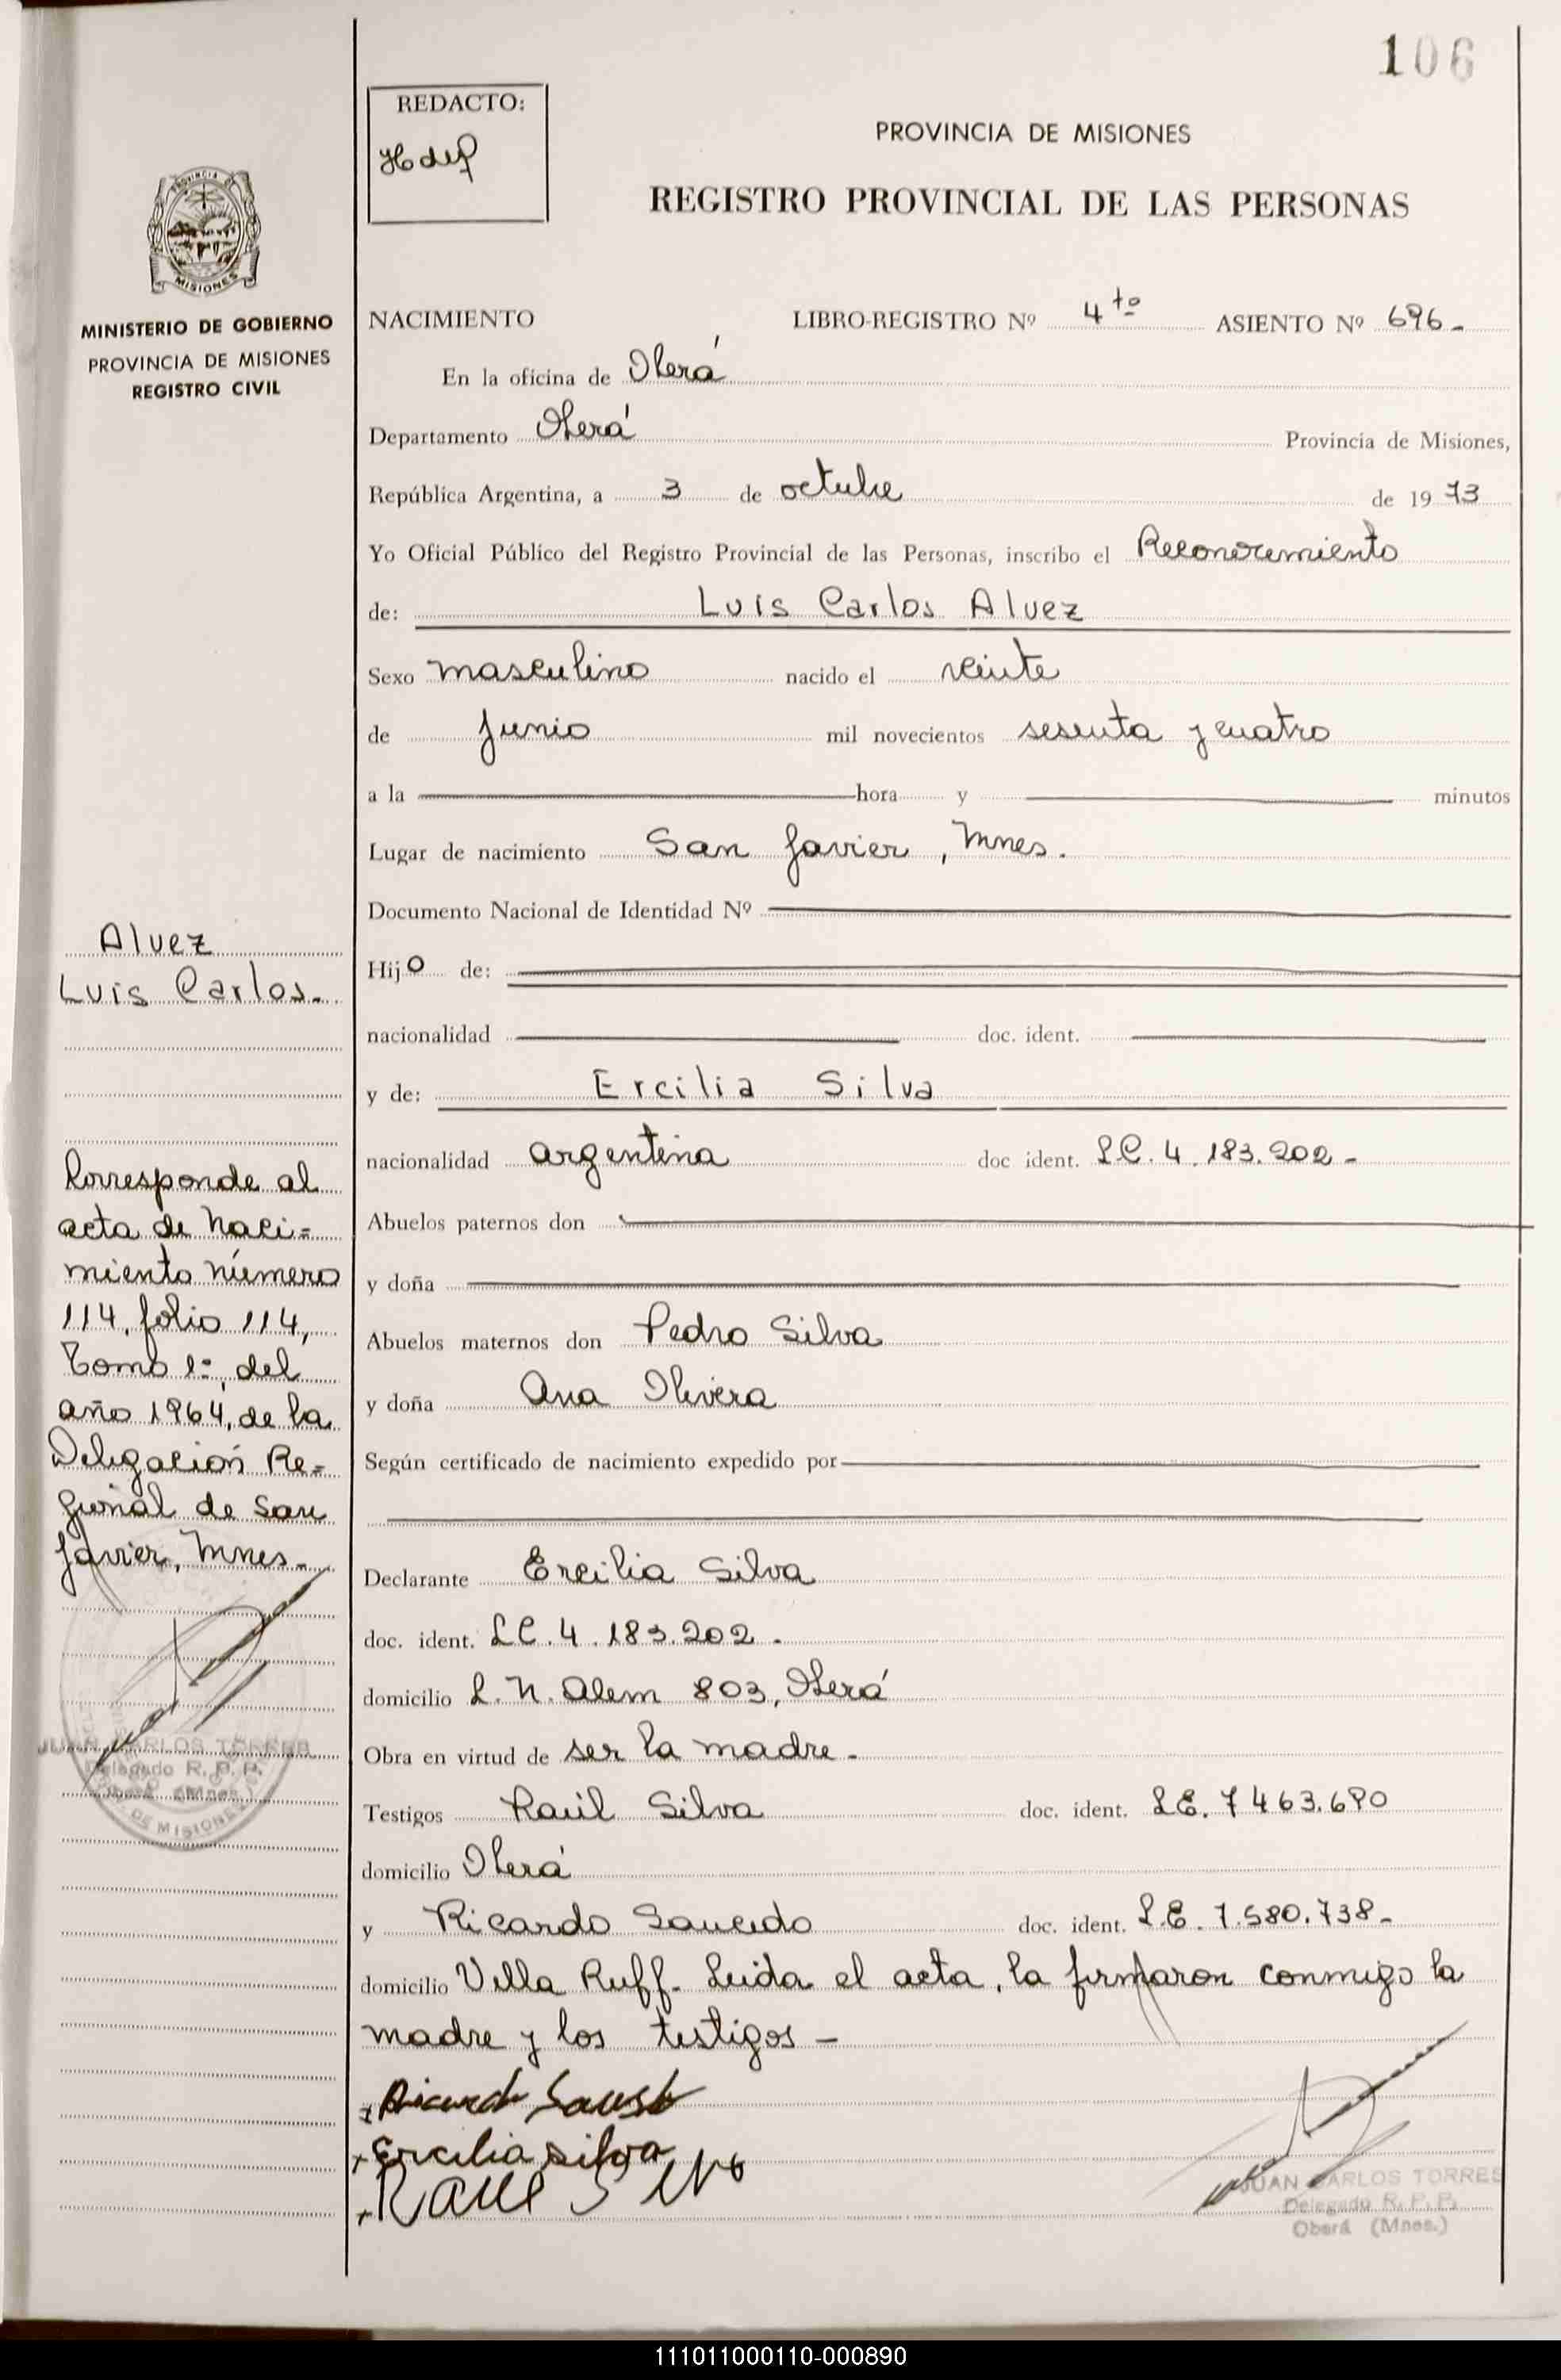 106
REDACTO:
PROVINCIA DE MISIONES
REGISTRO PROVINCIAL DE LAS PERSONAS
PROVINCIA DE
MISIONES
MINISTERIO DE GOBIERNO
PROVINCIA DE MISIONES
REGISTRO CIVIL
NACIMIENTO LIBRO-REGISTRO Nº 4to ASIENTO Nº 696-
En la oficina de Oberá
Departamento Oberá Provincia de Misiones,
República Argentina, a 3 de octubre de 1973
Yo Oficial Público del Registro Provincial de las Personas, inscribo el Reconocimiento
de: Luis Carlos Alvez
Sexo masculino nacido el veinte
de junio mil novecientos sesenta y cuatro
a la hora y minutos
Lugar de nacimiento San Javier, Mnes.
Documento Nacional de Identidad Nº
Hijo de:
nacionalidad doc. ident.
y de: Ercilia Silva
nacionalidad argentina doc ident. L.C. 4.183.202-
Abuelos paternos don
y doña
Abuelos maternos don Pedro Silva
y doña Ana Olivera
Según certificado de nacimiento expedido por
Declarante Ercilia Silva
doc. ident. L.C. 4.183.202.
domicilio L. N. Alem 803, Oberá
Obra en virtud de ser la madre.
Testigos Raúl Silva doc. ident. L.E. 7463.690
domicilio Oberá
y Ricardo Saucedo doc. ident. L.E. 7.580.738-
domicilio Villa Ruff. Leida el acta, la firmaron conmigo la
madre y los testigos -
Ercilia silva
JUAN CARLOS TORRES
Delegado R. P. P.
Oberá (Mnes.)
Alvez
Luis Carlos.
Corresponde al
acta de Naci=
miento número
114, folio 114,
Tomo 1º, del
año 1964, de la
Delegación Re=
gional de San
Javier, Mnes-
JUAN CARLOS TORRES
Delegado R. P. P.
Oberá (Mnes.)
DE MISIONES
111011000110-000890